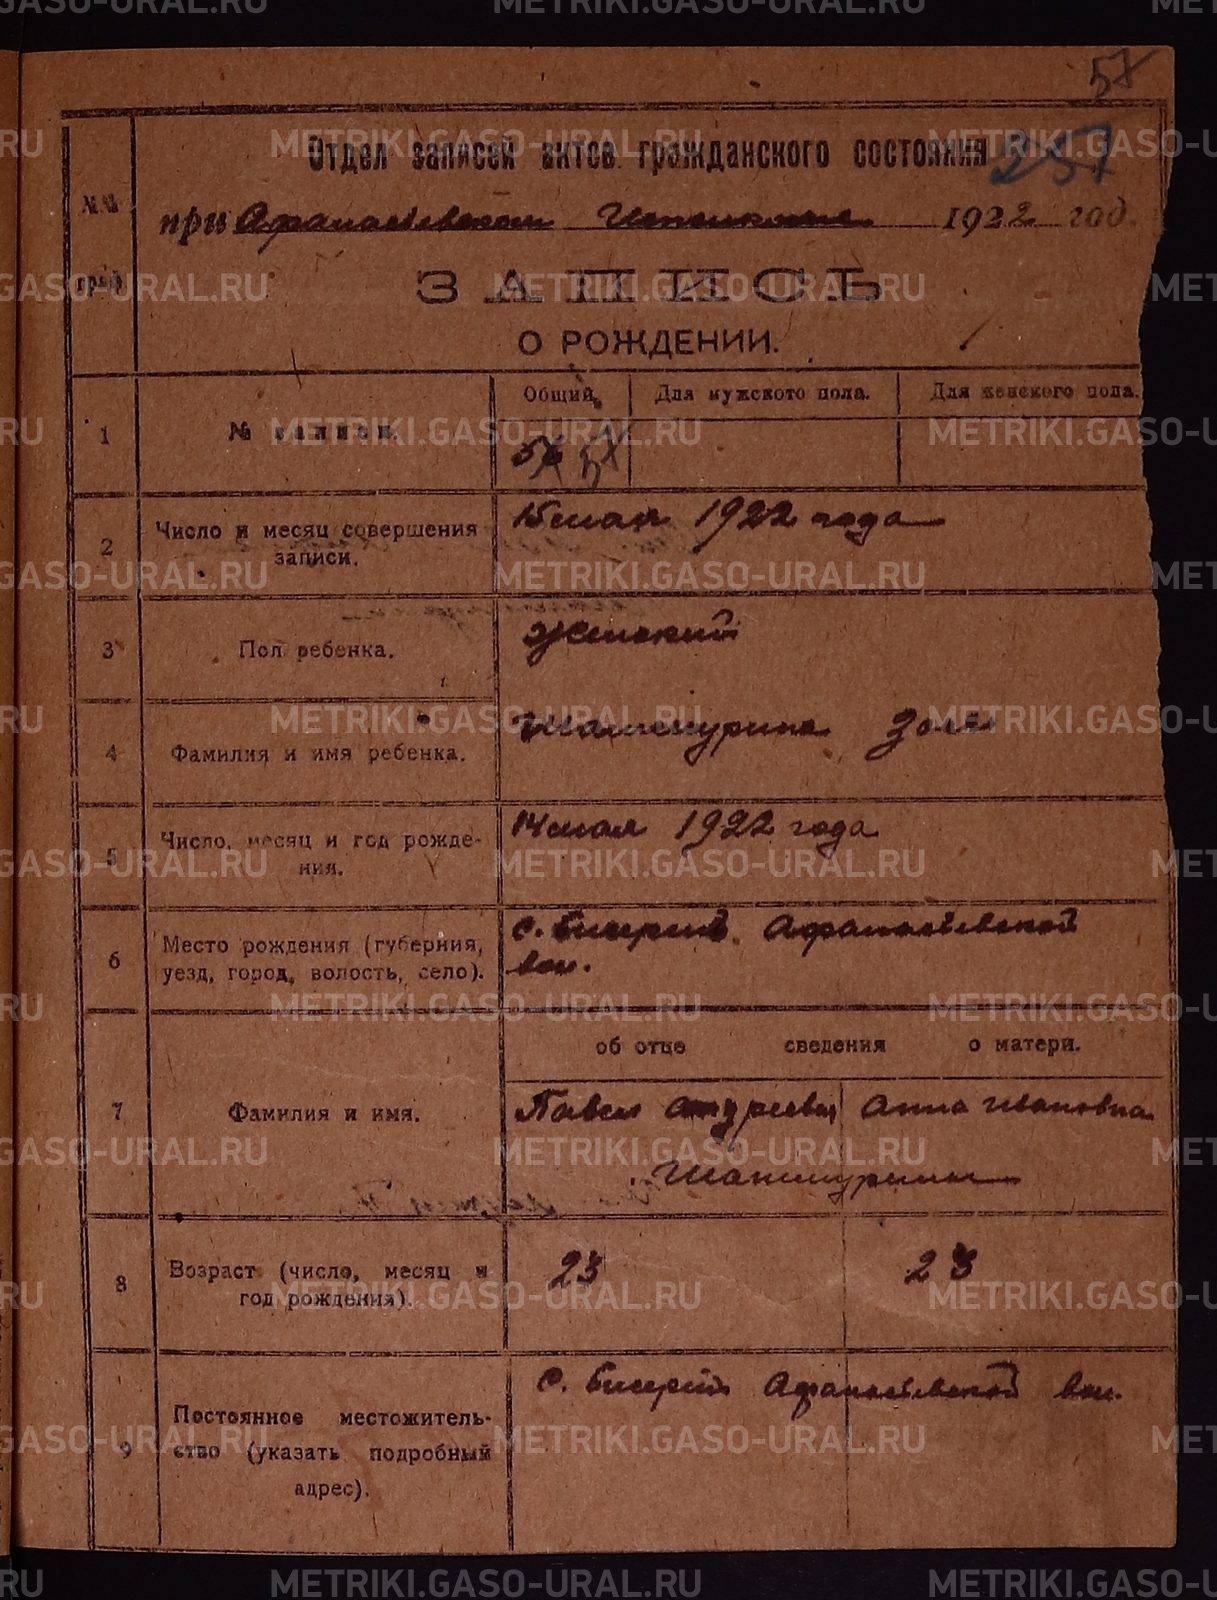 57
Отдел записей актов гражданского состояния 257
при Афанасьевском 1922 год.
№№ граф
ЗАПИСЬ
О РОЖДЕНИИ.
Общий. Для мужского пола. Для женского пола.
1 № записи. 57
2 Число и месяц совершения записи. 15 мая 1922 года
3 Пол ребенка. Женский
4 Фамилия и имя ребенка. Шаншурина Зоя
5 Число, месяц и год рождения. 14 мая 1922 года
6 Место рождения (губерния, уезд, город, волость, село). с. Афанасьевской вол.
об отце сведения о матери.
7 Фамилия и имя. Павел Андреевич Анна Ивановна
Шаншурины
8 Возраст (число, месяц и год рождения). 23 23
9 Постоянное местожительство (указать подробный адрес). с. Афанасьевской вол.
METRIKI.GASO-URAL.RU